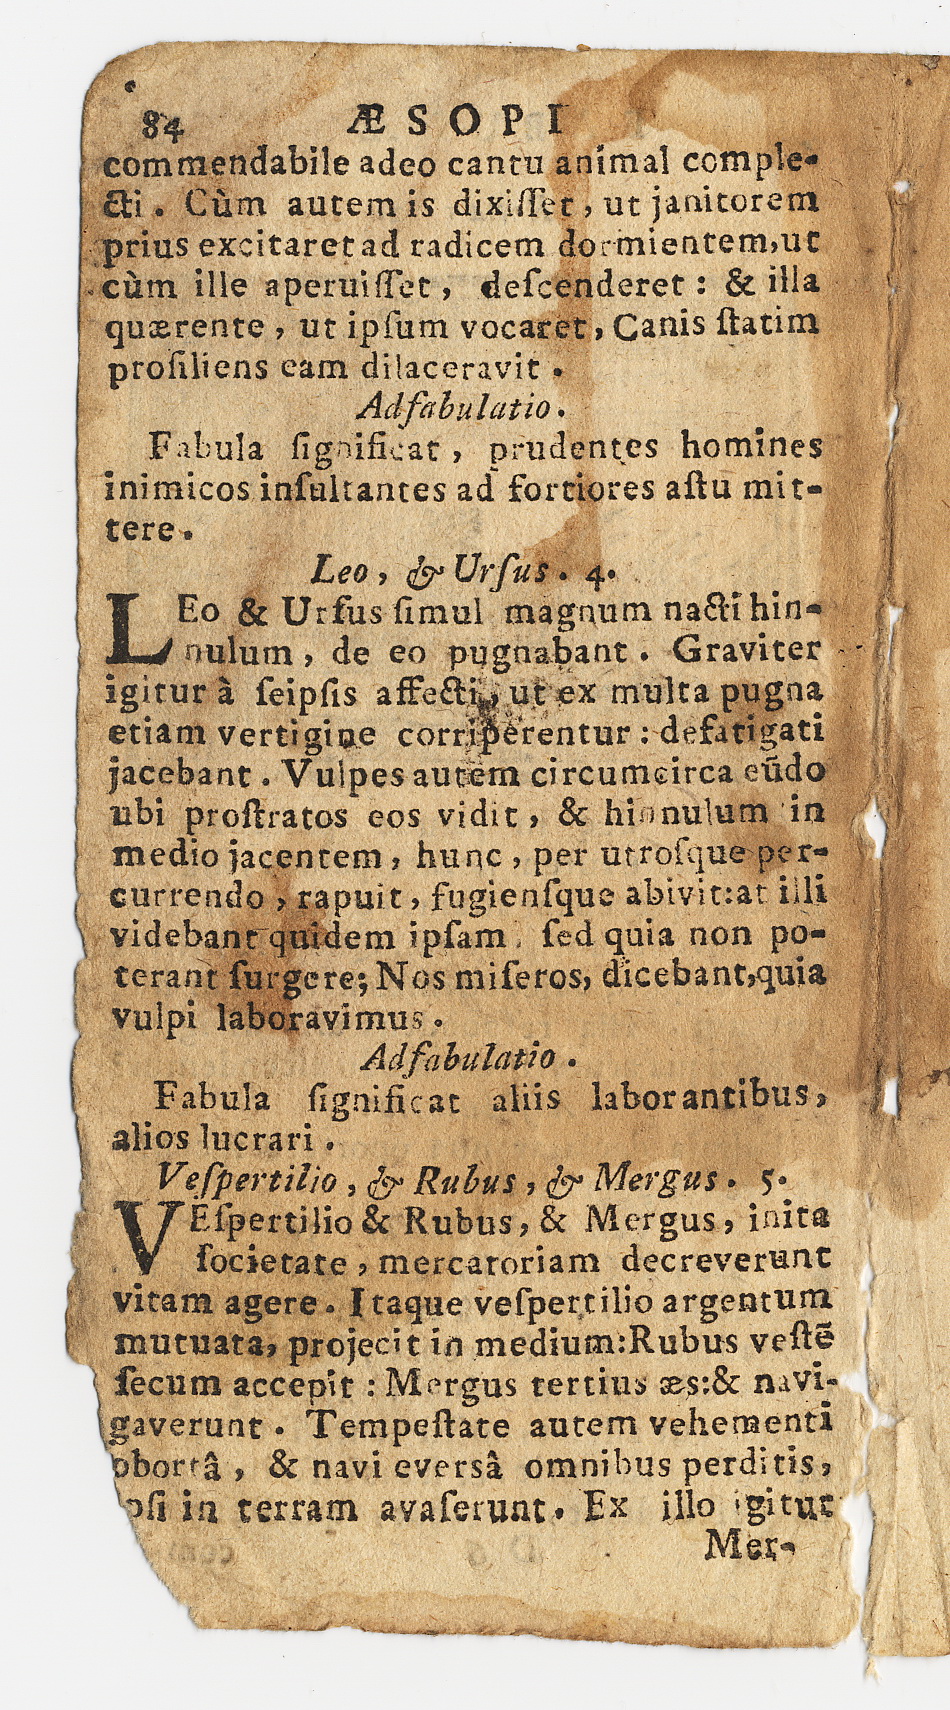 84 ÆSOPI
commendabile adeo cantu animal comple-
cti. Cùm autem is dixiſſet, ut janitorem
prius excitaret ad radicem dormientem, ut
cùm ille aperuiſſet, deſcenderet: & illa
quærente, ut ipſum vocaret, Canis ſtatim
proſiliens eam dilaceravit.
Adfabulatio.
Fabula ſignificat, prudentes homines
inimicos inſultantes ad fortiores aſtu mit-
tere.
Leo, & Urſus. 4.
LEo & Urſus ſimul magnum nacti hin-
nulum, de eo pugnabant. Graviter
igitur à ſeipſis affecti, ut ex multa pugna
etiam vertigine corriperentur: defatigati
jacebant. Vulpes autem circumcirca eũdo
ubi proſtratos eos vidit, & hinnulum in
medio jacentem, hunc, per utroſque per-
currendo, rapuit, fugienſque abivit: at illi
videbant quidem ipſam, ſed quia non po-
terant ſurgere; Nos miſeros, dicebant, quia
vulpi laboravimus.
Adfabulatio.
Fabula ſignificat aliis laborantibus,
alios lucrari.
Veſpertilio, & Rubus, & Mergus. 5.
VEſpertilio & Rubus, & Mergus, inita
ſocietate, mercatoriam decreverunt
vitam agere. Itaque veſpertilio argentum
mutuata, projecit in medium: Rubus veſtē
ſecum accepit: Mergus tertius æs: & navi-
gaverunt. Tempeſtate autem vehementi
obortâ, & navi eversâ omnibus perditis,
pſi in terram avaſerunt. Ex illo igitur
Mer-